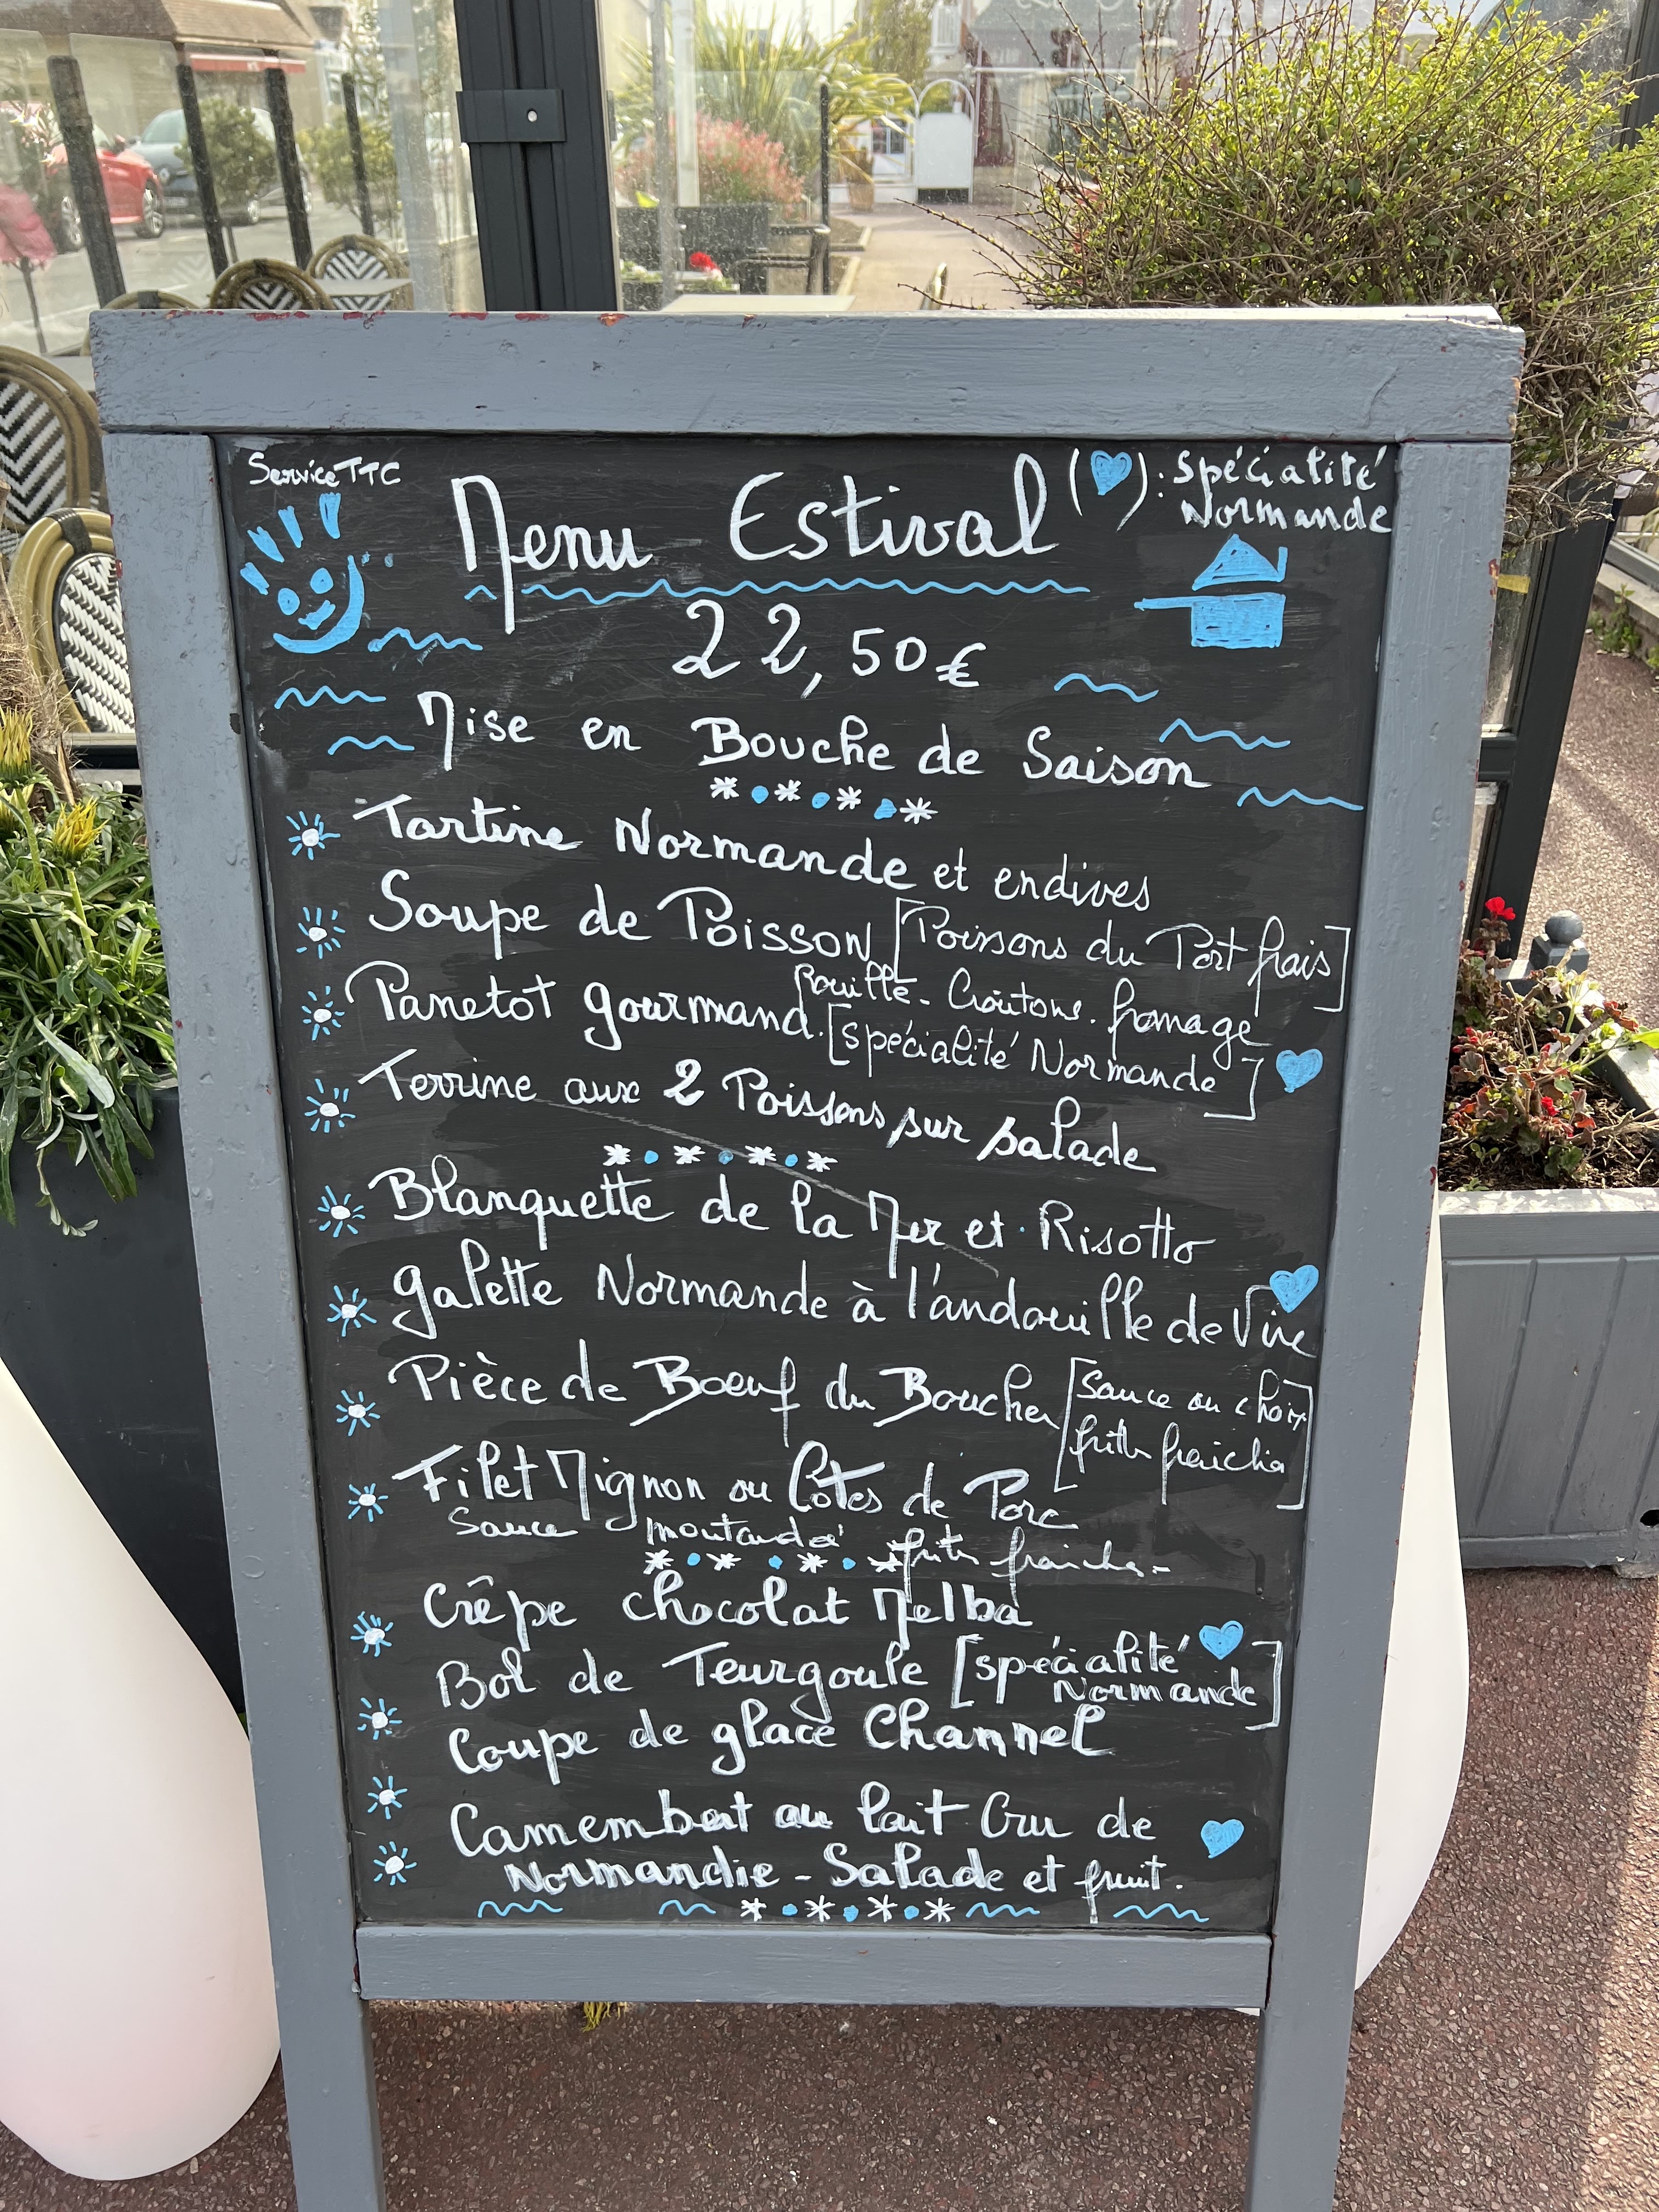 Service TTC
Menu Estival
( ) : Spécialité
Normande
22,50€
Mise en Bouche de Saison
Tartine Normande et endives
Soupe de Poisson [Poissons du Port frais]
rouille - Croûtons - fromage
Panetot gourmand. [spécialité Normande]
Terrine aux 2 Poissons sur salade
Blanquette de la Mer et Risotto
galette Normande à l'andouille de Vire
Pièce de Boeuf du Boucher [Sauce au choix
frites fraîches]
Filet Mignon ou Côtes de Porc
Sauce moutarde frites fraîches -
Crêpe chocolat Melba
Bol de Teurgoule [spécialité
Normande]
Coupe de glace Channel
Camembert au lait Cru de
Normandie - Salade et fruit.